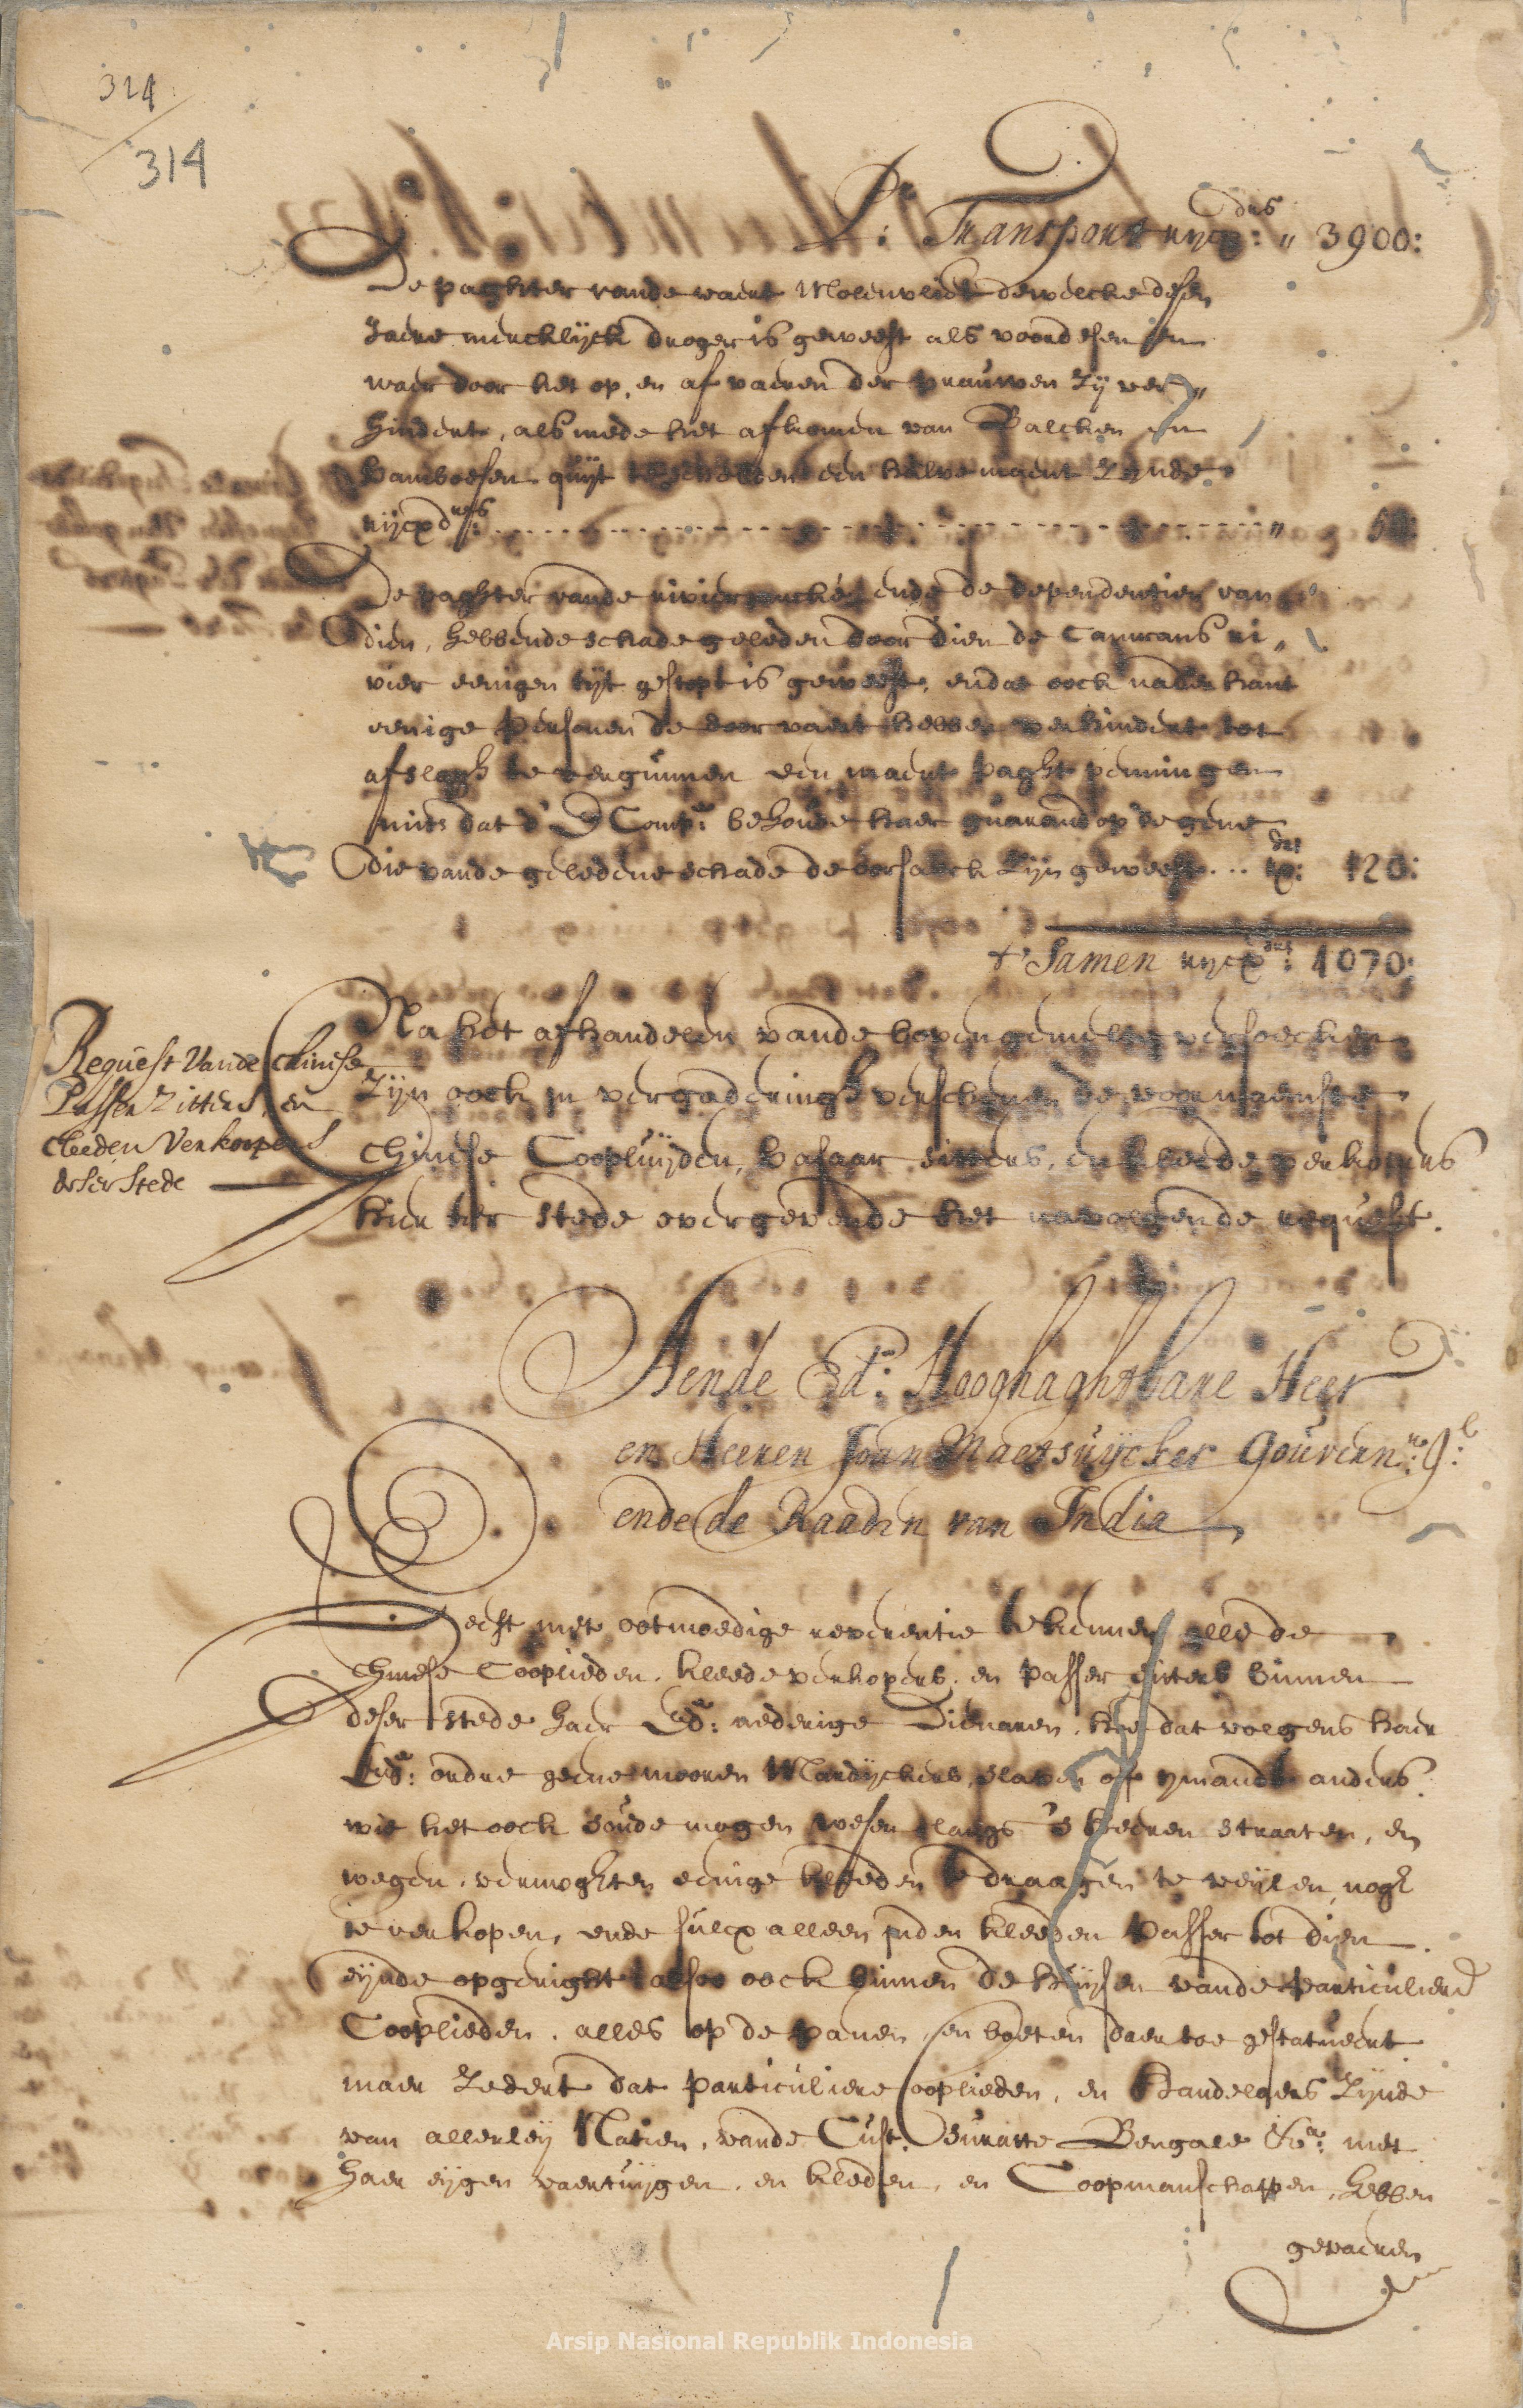 314
314
P:r Transport rijcx:drs " 3900:
De paghter vande vaert Molenvliet dewelcke desen
Jaere mercklijck droger is geweest als voor desen en
waer door het op, en af vaeren der prauwen zij ver„
hindert, als mede het afkomen van Balcken en
bamboesen quijt te schelden een halve maent zijnde
rijcxdrs: " 50:
De paghter vande rivier ende de dependentien van
dien, hebbende schade geleden door dien de ri„
vier eenigen tijt gestopt is geweest, en dat oock naderhant
eenige personen de doorvaert hebben verhindert tot
afslagh te vergunnen een maent paght penningen
mits dat d' E Comp:e behoude haer guarand op de gene
die vande geledene schade de oorsaeck zijn geweest... rx:drs 120:
t' Samen rijcxdrs: 4070:
Request vande Chinese
Passer zitters, en
cleeden verkoopers
deser stede
Na het afhandelen vande bovengemelte versoecken
zijn oock in vergaderingh verschenen de voornaemste
Chinese Coopluijden, basaar sitters, en kleede verkopers
hier ter stede overgevende het navolgende request.
Aende Ed:e Hooghaghtbare Heer
en Heeren Joan Maetsuijcker Gouvern:r G:l
ende de Raaden van India
Geeft met ootmoedige reverentie te kennen alle de
Chinese Cooplieden, kleede verkopers, en passer sitters binnen
deser stede haer Ed:e nederige Dienaren, hoe dat volgens haer
Ed:s ordre geene mooren Mardijckers, slaven of ymandt anders
wie het oock soude mogen wesen langs 's heeren straaten, en
wegen, vermoghten eenige kleeden te draagen te veijlen, nogh
te verkopen, ende sulcx alleen inden kleeden passer tot dien
eijnde opgeright alsoo oock binnen de huijsen vande particuliere
Cooplieden, alles op de panen, en boeten daer toe gestatueert
maer zedert dat particuliere Cooplieden, en Handelaers zijnde
van allerleij Natien, vande Cust, Suratte Bengale &c:a met
haer eijgen vaertuijgen, en kleeden, en Coopmanschappen, hebben
gevaeren
Arsip Nasional Republik Indonesia